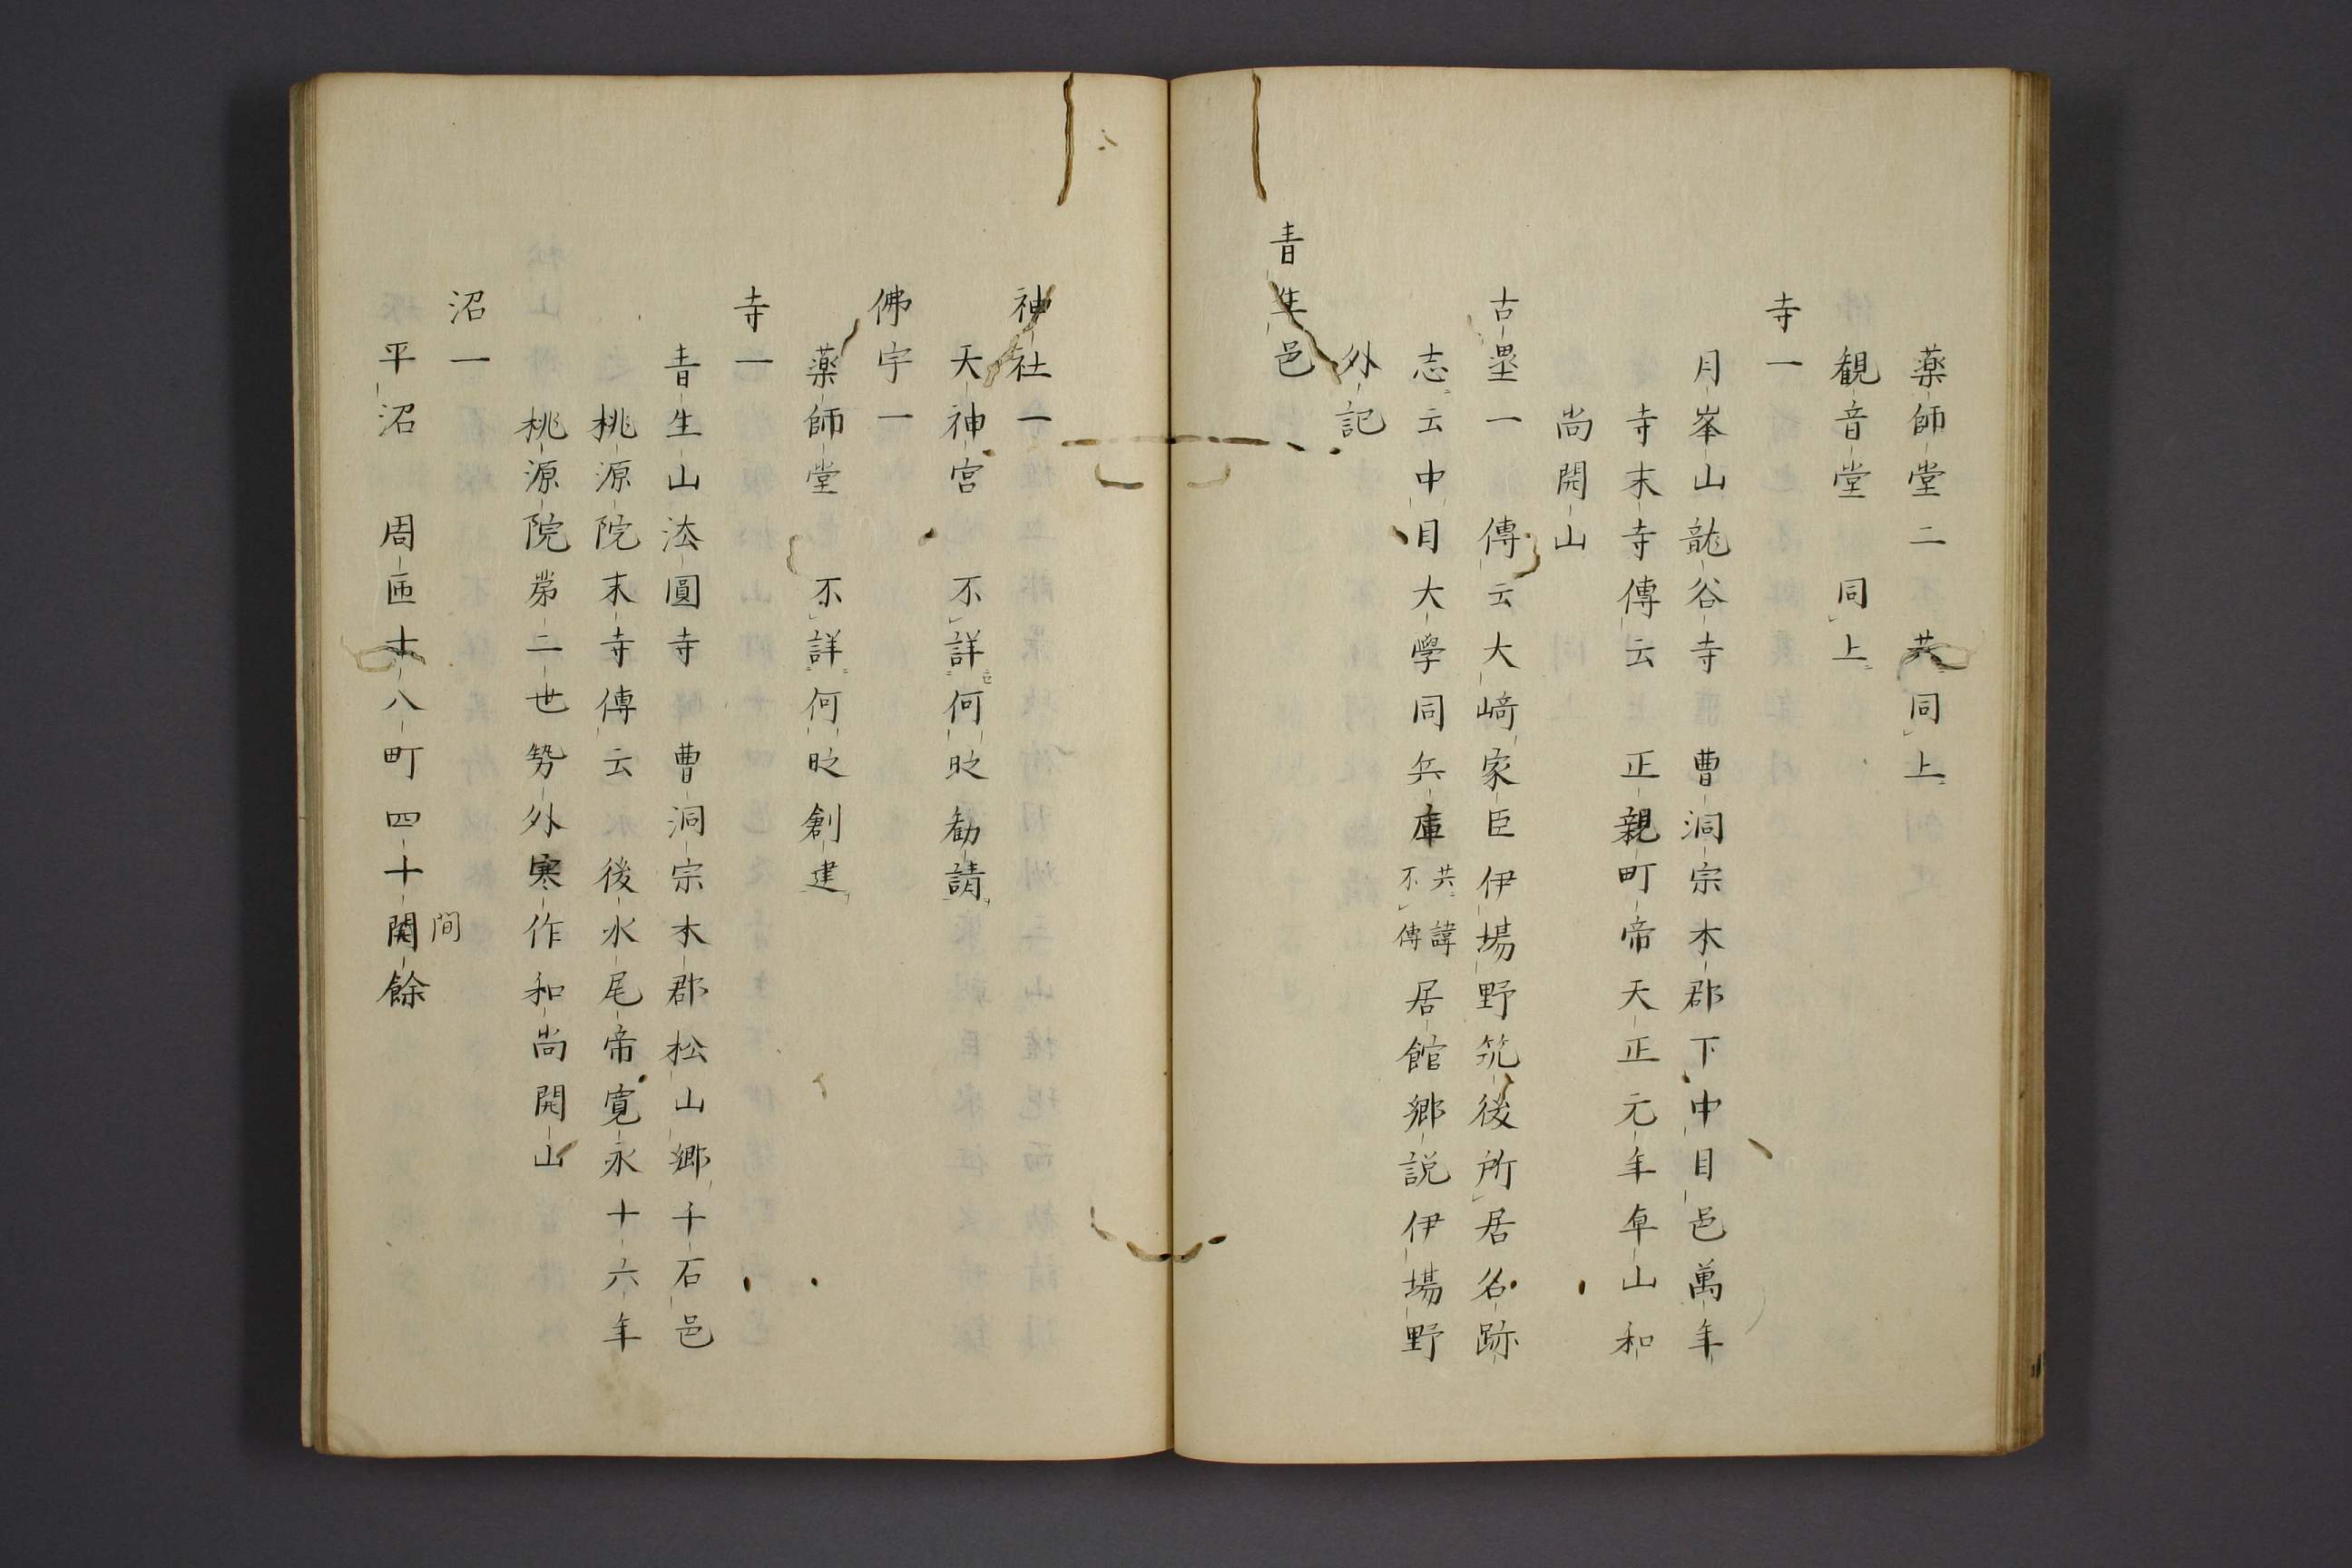 薬師堂二　共同上
観音堂　同上
寺一
月峯山龍谷寺　曹洞宗本郡下中目邑萬年
寺末寺傳云　正親町帝天正元年卓山和
尚開山
古塁一　傳云大﨑家臣伊場野筑後所居名跡
志云中目大學同兵庫共諱不傳居館郷説伊場野
外記
青生邑
神社一
天神宮　不詳何时勧請
佛宇一
薬師堂　不詳何时創建
寺一
青生山法圓寺　曹洞宗本郡松山郷千石邑
桃源院末寺傳云　後水尾帝寛永十六年
桃源院第二世勢外寒作和尚開山
沼一
平沼　周匝十八町四十間餘